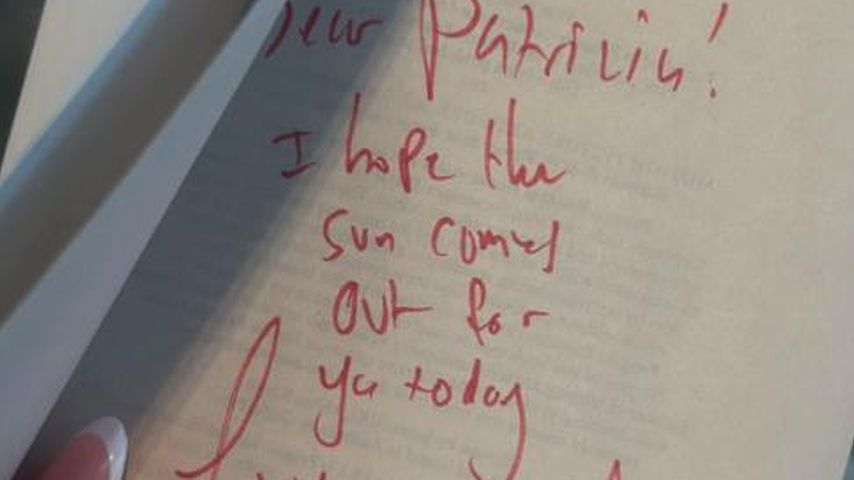 Dear Patricia!
I hope the
sun comes
out for
ya today